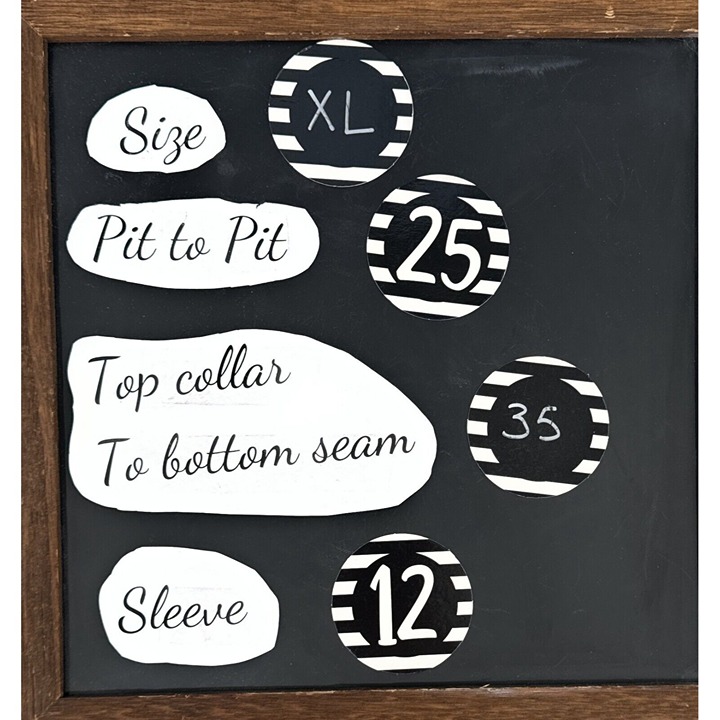 Size XL
Pit to Pit 25
Top collar
To bottom seam 35
Sleeve 12